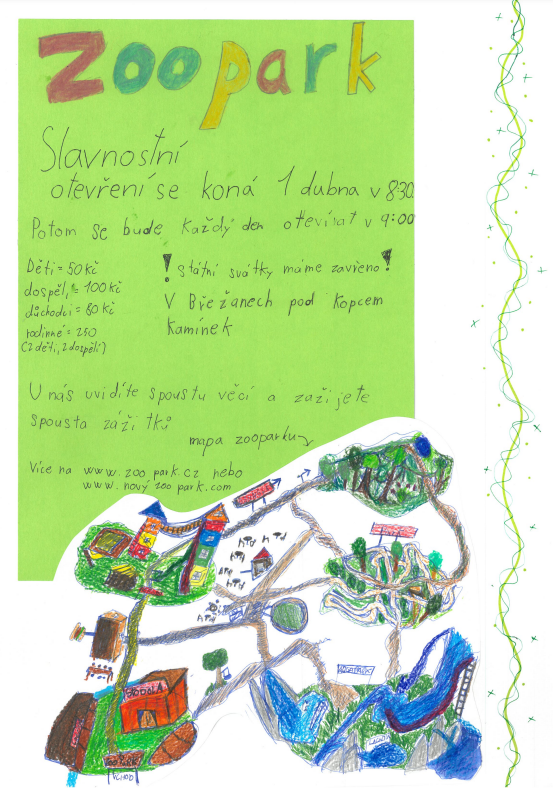 Zoopark
Slavnostní
otevření se koná 1 dubna v 8:30
Potom se bude každý den otevírat v 9:00
Děti = 50 kč
dospěl, = 100 kč
důchodci = 80 kč
rodinné = 250
(2 děti, 2 dospělí)
! státní svátky máme zavřeno!
V Břežanech pod kopcem
kamínek
U nás uvidíte spoustu věcí a zažijete
spousta zážitků
mapa zooparku
Více na www.zoo park.cz nebo
www.nový zoo park.com
VCHOD